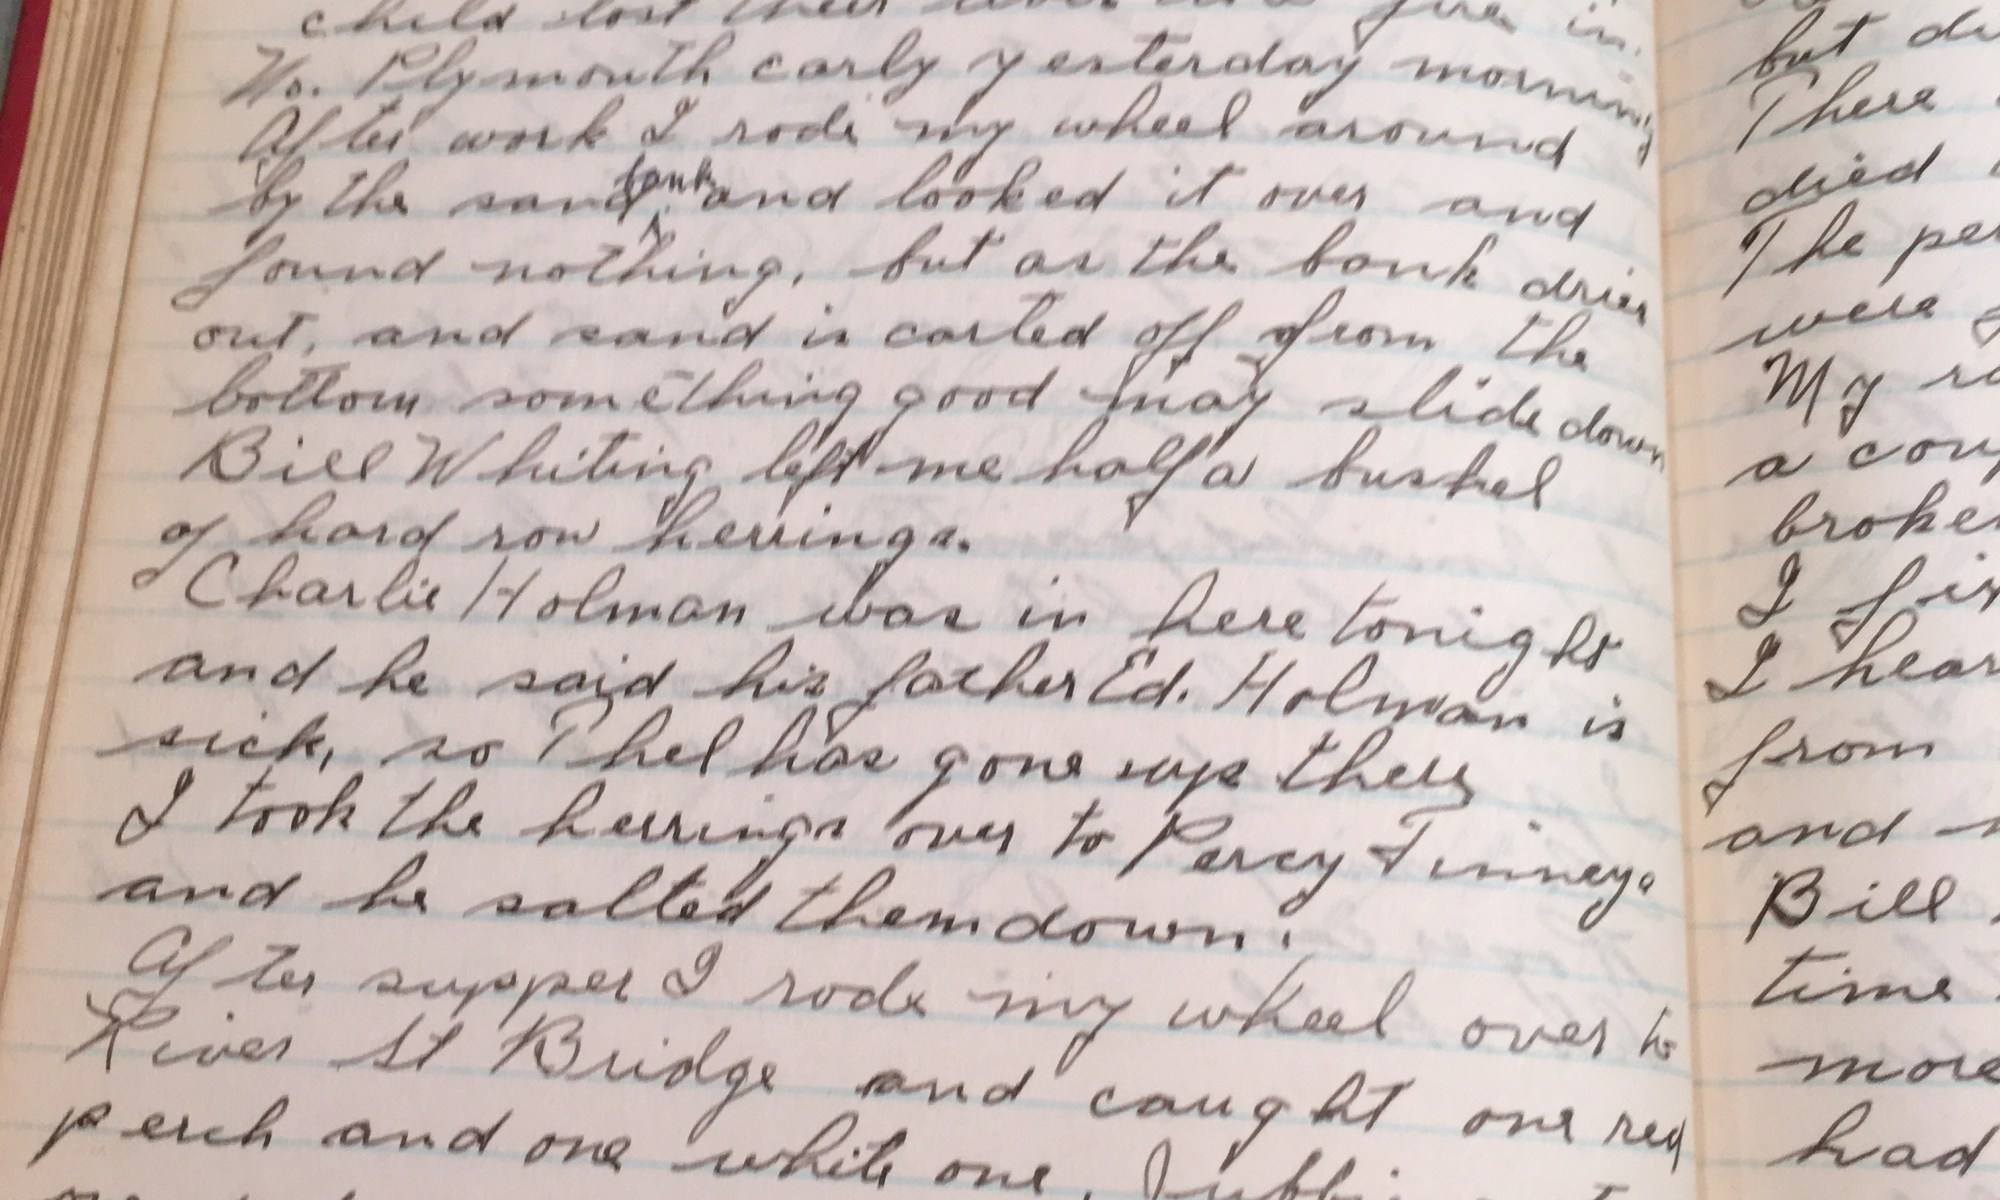 child lost their lives in a fire in
No. Plymouth early yesterday morning
After work I rode my wheel around
by the sand bank and looked it over and
found nothing, but as the bank dries
out, and sand is carted off from the
bottom something good may slide down
Bill Whiting left me half a bushel
of hard row herrings.
Charlie Holman was in here tonight
and he said his father Ed. Holman is
sick, so Thel has gone up there
I took the herrings over to Percy Finneys
and he salted them down.
After supper I rode my wheel over to
River St Bridge and caught one red
perch and one white one.
but
There
died
The
were
My
a
broken
I
I hear
from
and
Bill
time
more
had